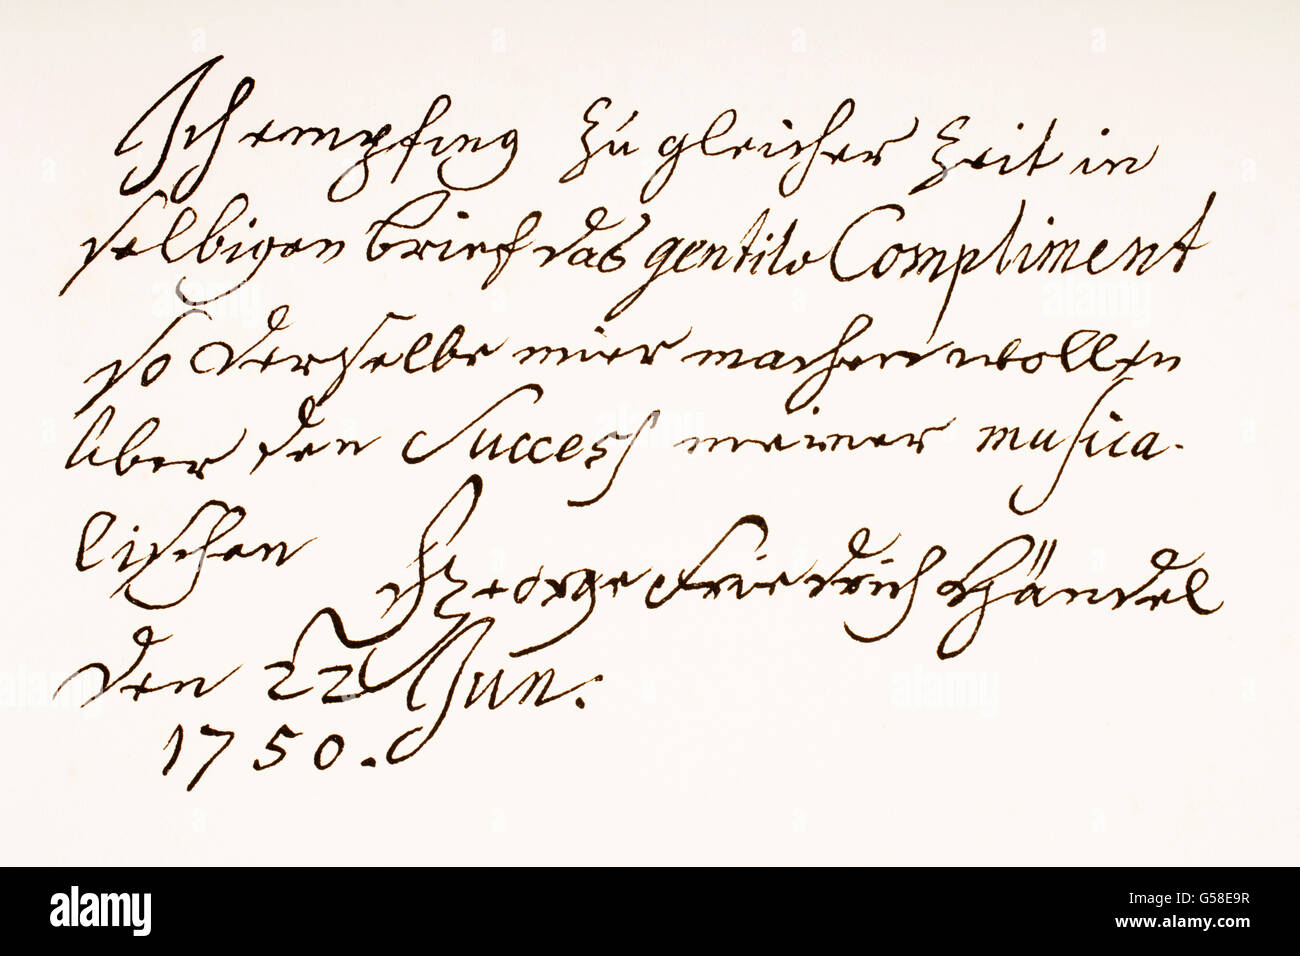 Ich empfing zu gleicher Zeit in
selbigen brief das gentile Compliment
so derselbe mier machen wollen
über den Success meiner musica-
lischen
George Friedrich Händel
den 22 Jun.
1750.
alamy
Image ID: G58E9R
www.alamy.com